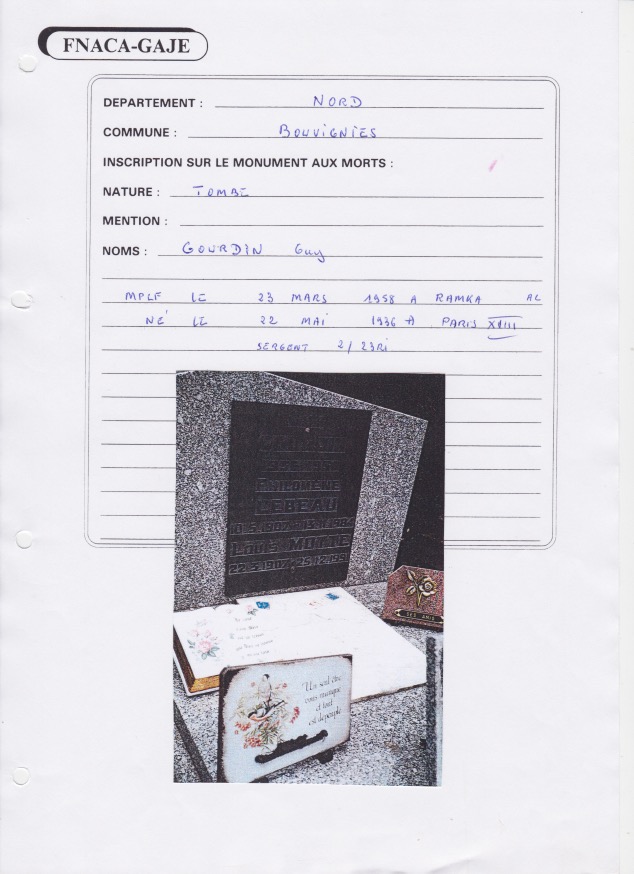 FNACA-GAJE
DEPARTEMENT : NORD
COMMUNE : BOUVIGNIES
INSCRIPTION SUR LE MONUMENT AUX MORTS :
NATURE : TOMBE
MENTION :
NOMS : GOURDIN Guy
MPLF LE 23 MARS 1958 A RAMKA AL
NÉ LE 22 MAI 1936 A PARIS XVIII
SERGENT 2/23RI
PHILOMENE
LEBEAU
Louis MOTTE
SES AMIS
Un seul être
vous manque
et tout
est dépeuplé